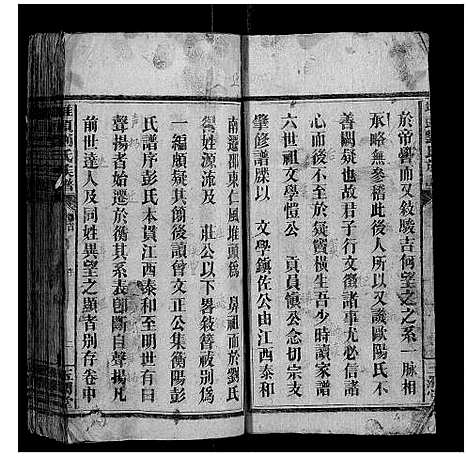 於帝嚳而又敘駿吉何望之之系一脈相
承略無參稽此後人所以又議歐陽氏不
善闕疑也故君子行文徵諸事尤必信諸
心而後不至於疑竇橫生吾少時讀家譜
六世祖文學愷公 貢員慎公念切宗支
肇修譜牒以 文學鎮佐公由江西泰和
南遷邵東仁風堆頭為 鼻祖而於劉氏
得姓源流及 莊公以下畧敘管祓別為
一編頗疑其節後讀曾文正公集衡陽彭
氏譜序彭氏本貫江西泰和至明世有曰
聲揚者始遷於衡其系表卽斷自聲揚凡
前世達人及同姓異望之顯者別存卷中